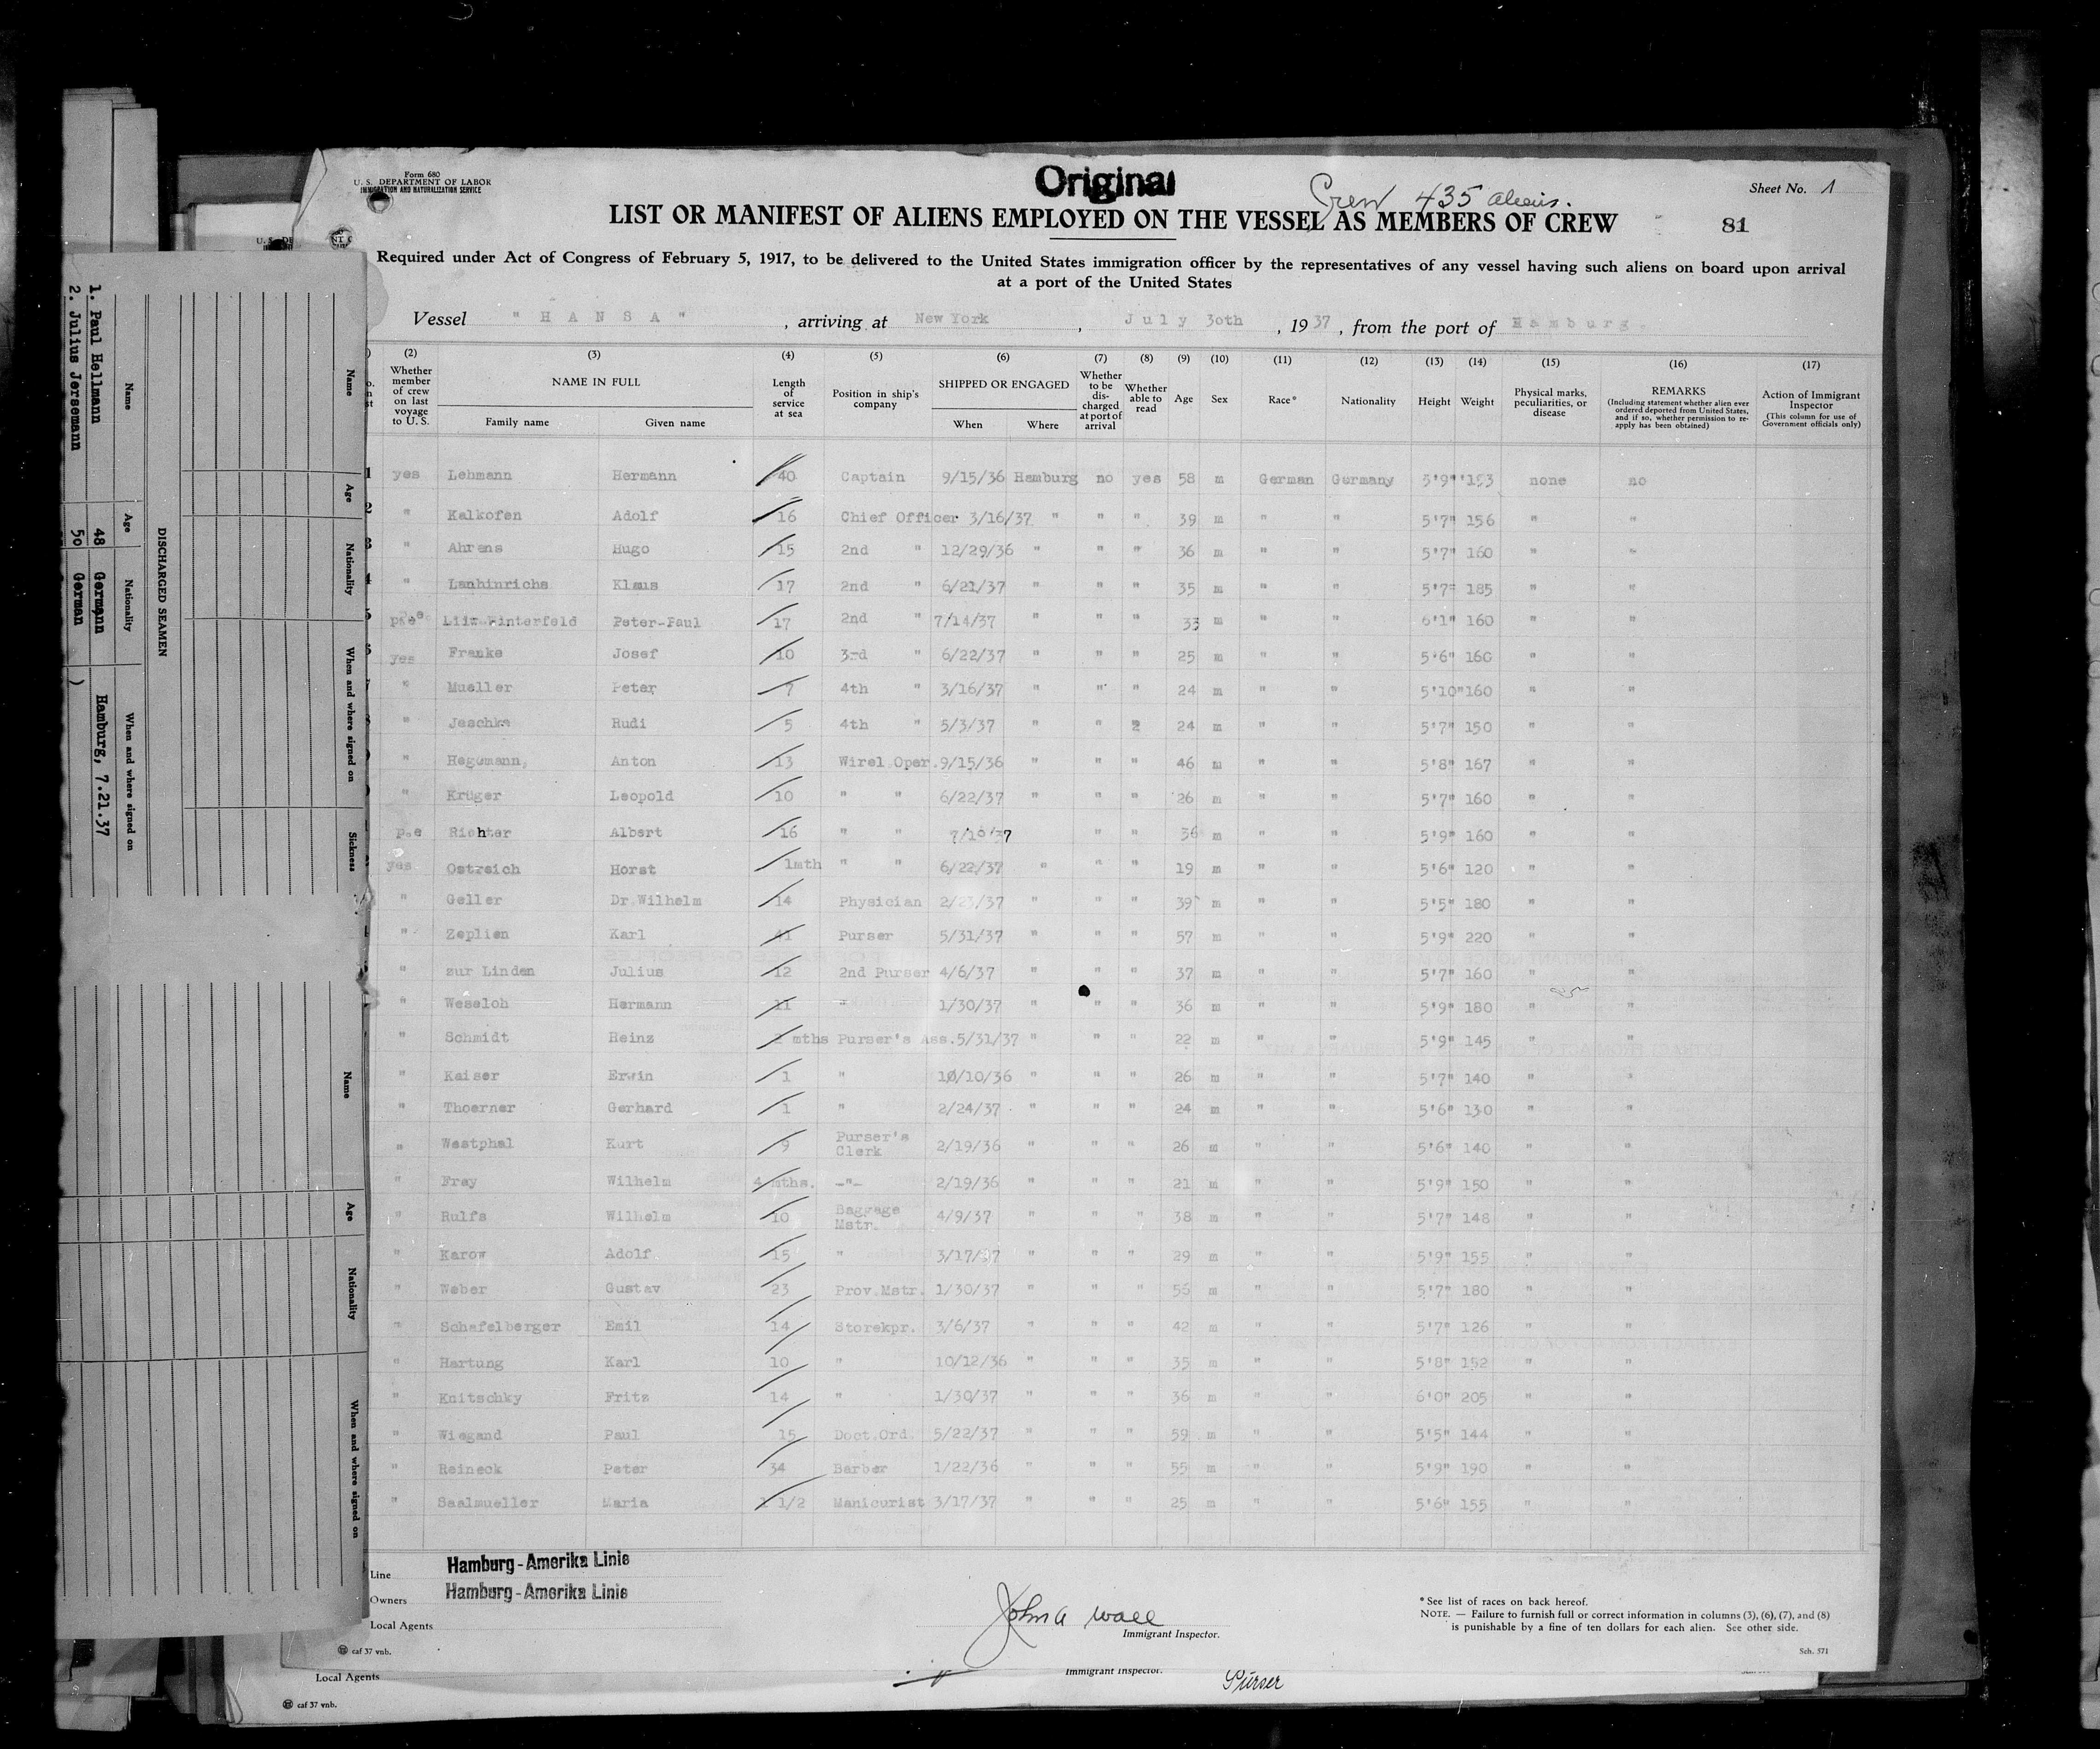 Form 680
U. S. DEPARTMENT OF LABOR
IMMIGRATION AND NATURALIZATION SERVICE
Original
Crew 435 aliens.
Sheet No. 1
LIST OR MANIFEST OF ALIENS EMPLOYED ON THE VESSEL AS MEMBERS OF CREW
81
Required under Act of Congress of February 5, 1917, to be delivered to the United States immigration officer by the representatives of any vessel having such aliens on board upon arrival
at a port of the United States
Vessel " H A N S A " , arriving at New York , July 30th , 1937 , from the port of Hamburg.
(2) (3) (4) (5) (6) (7) (8) (9) (10) (11) (12) (13) (14) (15) (16) (17)
Whether member of crew on last voyage to U. S.
NAME IN FULL
Family name Given name
Length of service at sea
Position in ship's company
SHIPPED OR ENGAGED
When Where
Whether to be discharged at port of arrival
Whether able to read
Age Sex Race* Nationality Height Weight
Physical marks, peculiarities, or disease
REMARKS
(Including statement whether alien ever ordered deported from United States, and if so, whether permission to reapply has been obtained)
Action of Immigrant Inspector
(This column for use of Government officials only)
1 yes Lehmann Hermann 40 Captain 9/15/36 Hamburg no yes 58 m German Germany 5'9" 193 none no
" Kalkofen Adolf 16 Chief Officer 3/16/37 " " " 39 m " " 5'7" 156 " "
" Ahrens Hugo 15 2nd " 12/29/36 " " " 36 m " " 5'7" 160 " "
" Lanhinrichs Klaus 17 2nd " 6/21/37 " " " 35 m " " 5'7" 185 " "
Peter-Paul 17 2nd " 7/14/37 " " " 33 m " " 6'1" 160 " "
yes Franke Josef 10 3rd " 6/22/37 " " " 25 m " " 5'6" 160 " "
" Mueller Peter 7 4th " 3/16/37 " " " 24 m " " 5'10" 160 " "
" Jeschke Rudi 5 4th " 5/3/37 " " 2 24 m " " 5'7" 150 " "
" Hegemann, Anton 13 Wirel.Oper. 9/15/36 " " " 46 m " " 5'8" 167 " "
" Krüger Leopold 10 " " 6/22/37 " " " 26 m " " 5'7" 160 " "
p.e Richter Albert 16 " " 7/10/37 " " 36 m " " 5'9" 160 " "
yes Ostreich Horst 1mth " " 6/22/37 " " " 19 m " " 5'6" 120 " "
" Geller Dr.Wilhelm 14 Physician 2/23/37 " " " 39 m " " 5'5" 180 " "
" Zeplien Karl 41 Purser 5/31/37 " " " 57 m " " 5'9" 220 " "
" zur Linden Julius 12 2nd Purser 4/6/37 " " " 37 m " " 5'7" 160 " "
" Weseloh Hermann 11 " 1/30/37 " " " 36 m " " 5'9" 180 " "
" Schmidt Heinz 2 mths Purser's Ass. 5/31/37 " " " 22 m " " 5'9" 145 " "
" Kaiser Erwin 1 " 10/10/36 " " " 26 m " " 5'7" 140 " "
" Thoerner Gerhard 1 " 2/24/37 " " " 24 m " " 5'6" 130 " "
" Westphal Kurt 9 Purser's Clerk 2/19/36 " " " 26 m " " 5'6" 140 " "
" Frey Wilhelm 4 mths. -"- 2/19/36 " " " 21 m " " 5'9" 150 " "
" Rulfs Wilhelm 10 Baggage Mstr. 4/9/37 " " " 38 m " " 5'7" 148 " "
" Karow Adolf 15 " 3/17/37 " " " 29 m " " 5'9" 155 " "
" Weber Gustav 23 Prov.Mstr. 1/30/37 " " " 56 m " " 5'7" 180 " "
" Schafelberger Emil 14 Storekpr. 3/6/37 " " " 42 m " " 5'7" 126 " "
" Hartung Karl 10 " 10/12/36 " " " 35 m " " 5'8" 152 " "
" Knitschky Fritz 14 " 1/30/37 " " " 36 m " " 6'0" 205 " "
" Wiegand Paul 15 Doct.Ord. 5/22/37 " " " 59 m " " 5'5" 144 " "
" Reineck Peter 34 Barber 1/22/36 " " " 55 m " " 5'9" 190 " "
" Saalmueller Maria 1 1/2 Manicurist 3/17/37 " " " 25 m " " 5'6" 155 " "
Line Hamburg-Amerika Linie
Owners Hamburg-Amerika Linie
Local Agents
John A Wall
Immigrant Inspector.
* See list of races on back hereof.
NOTE. — Failure to furnish full or correct information in columns (3), (6), (7), and (8)
is punishable by a fine of ten dollars for each alien. See other side.
caf 37 vnb.
Sch. 571
Local Agents
Immigrant Inspector.
Purser
caf 37 vnb.
DISCHARGED SEAMEN
Name Age Nationality When and where signed on
1. Paul Hellmann 48 Germann Hamburg, 7.21.37
2. Julius Jersemann 50 German )
Name Age Nationality When and where signed on Sickness
Name Age Nationality When and where signed on